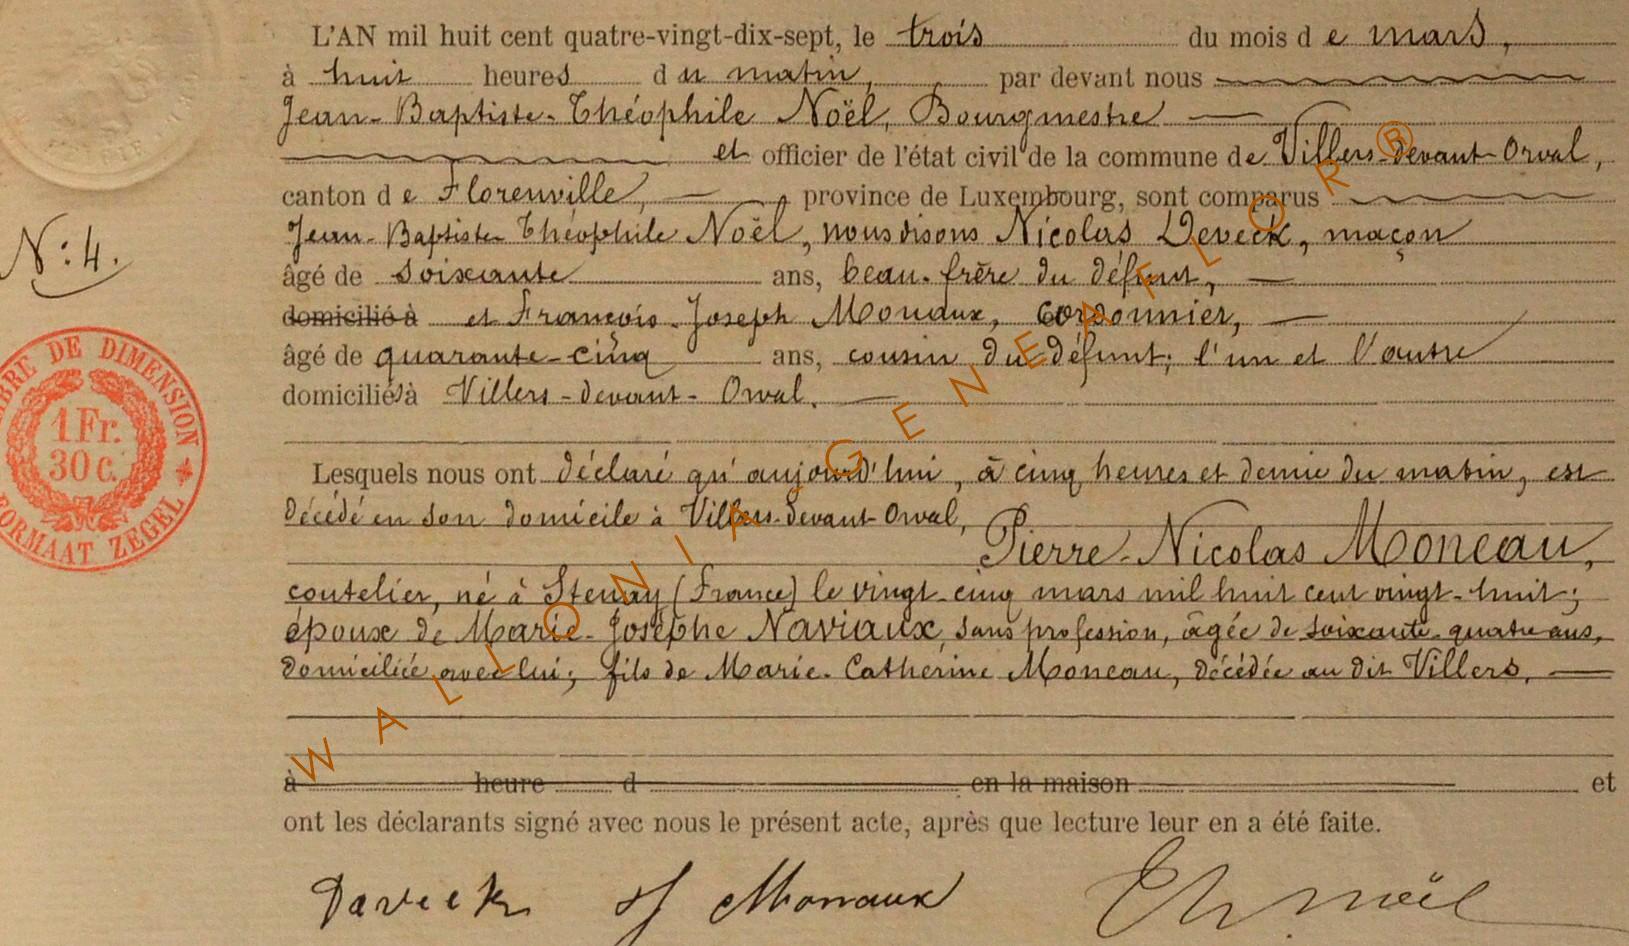 L'AN mil huit cent quatre-vingt-dix-sept, le trois du mois de mars,
à huit heures du matin, par devant nous
Jean-Baptiste-Théophile Noël, Bourgmestre
et officier de l'état civil de la commune de Villers-devant-Orval,
canton de Florenville, province de Luxembourg, sont comparus
Jean-Baptiste Théophile Noël, nous disons Nicolas Deveck, maçon
N: 4.
âgé de soixante ans, beau-frère du défunt,
domicilié à et François-Joseph Monaux, cordonnier,
âgé de quarante-cinq ans, cousin du défunt; l'un et l'autre
domiciliés à Villers-devant-Orval.
TIMBRE DE DIMENSION
1 Fr.
30 c.
FORMAAT ZEGEL
Lesquels nous ont déclaré qu'aujourd'hui, à cinq heures et demie du matin, est
décédé en son domicile à Villers-devant-Orval,
Pierre-Nicolas Moneau,
coutelier, né à Stenay (France) le vingt-cinq mars mil huit cent vingt-huit;
époux de Marie-Josephe Naviaux, sans profession, âgée de soixante-quatre ans,
domiciliée avec lui; fils de Marie-Catherine Moneau, décédée au dit Villers.
à heure d en la maison et
ont les déclarants signé avec nous le présent acte, après que lecture leur en a été faite.
Daveck J Monaux Th Noël
WALLONIA GENEAFLOR®